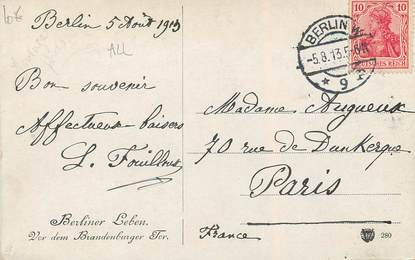 Berlin 5 Août 1913
Bon souvenir
Affectueux baisers
L. Fouilloux
Berliner Leben.
Vor dem Brandenburger Tor.
BERLIN W.
-5.8.13.5-6N.
* 9
10 10
DEUTSCHES REICH
Madame Augueux
70 rue de Dunkerque
Paris
France
280
ALL